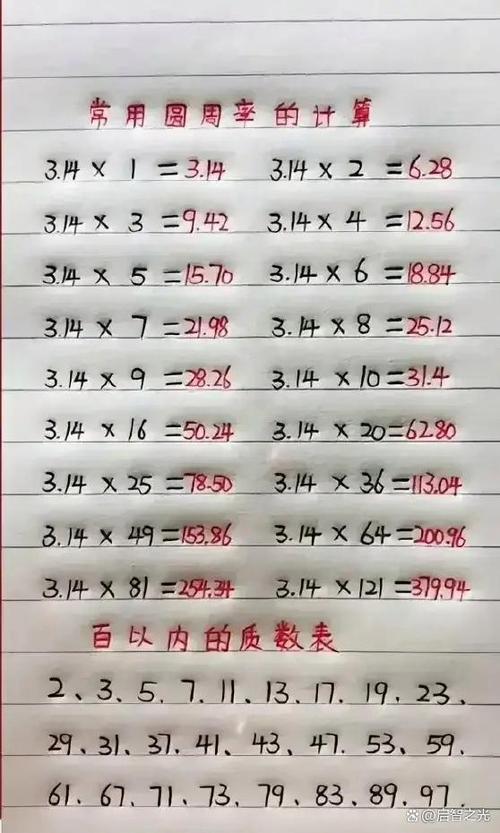 常用圆周率的计算
3.14 × 1 = 3.14 3.14 × 2 = 6.28
3.14 × 3 = 9.42 3.14 × 4 = 12.56
3.14 × 5 = 15.70 3.14 × 6 = 18.84
3.14 × 7 = 21.98 3.14 × 8 = 25.12
3.14 × 9 = 28.26 3.14 × 10 = 31.4
3.14 × 16 = 50.24 3.14 × 20 = 62.80
3.14 × 25 = 78.50 3.14 × 36 = 113.04
3.14 × 49 = 153.86 3.14 × 64 = 200.96
3.14 × 81 = 254.34 3.14 × 121 = 379.94
百以内的质数表
2、3、5、7、11、13、17、19、23、
29、31、37、41、43、47、53、59、
61、67、71、73、79、83、89、97.
@启智之光